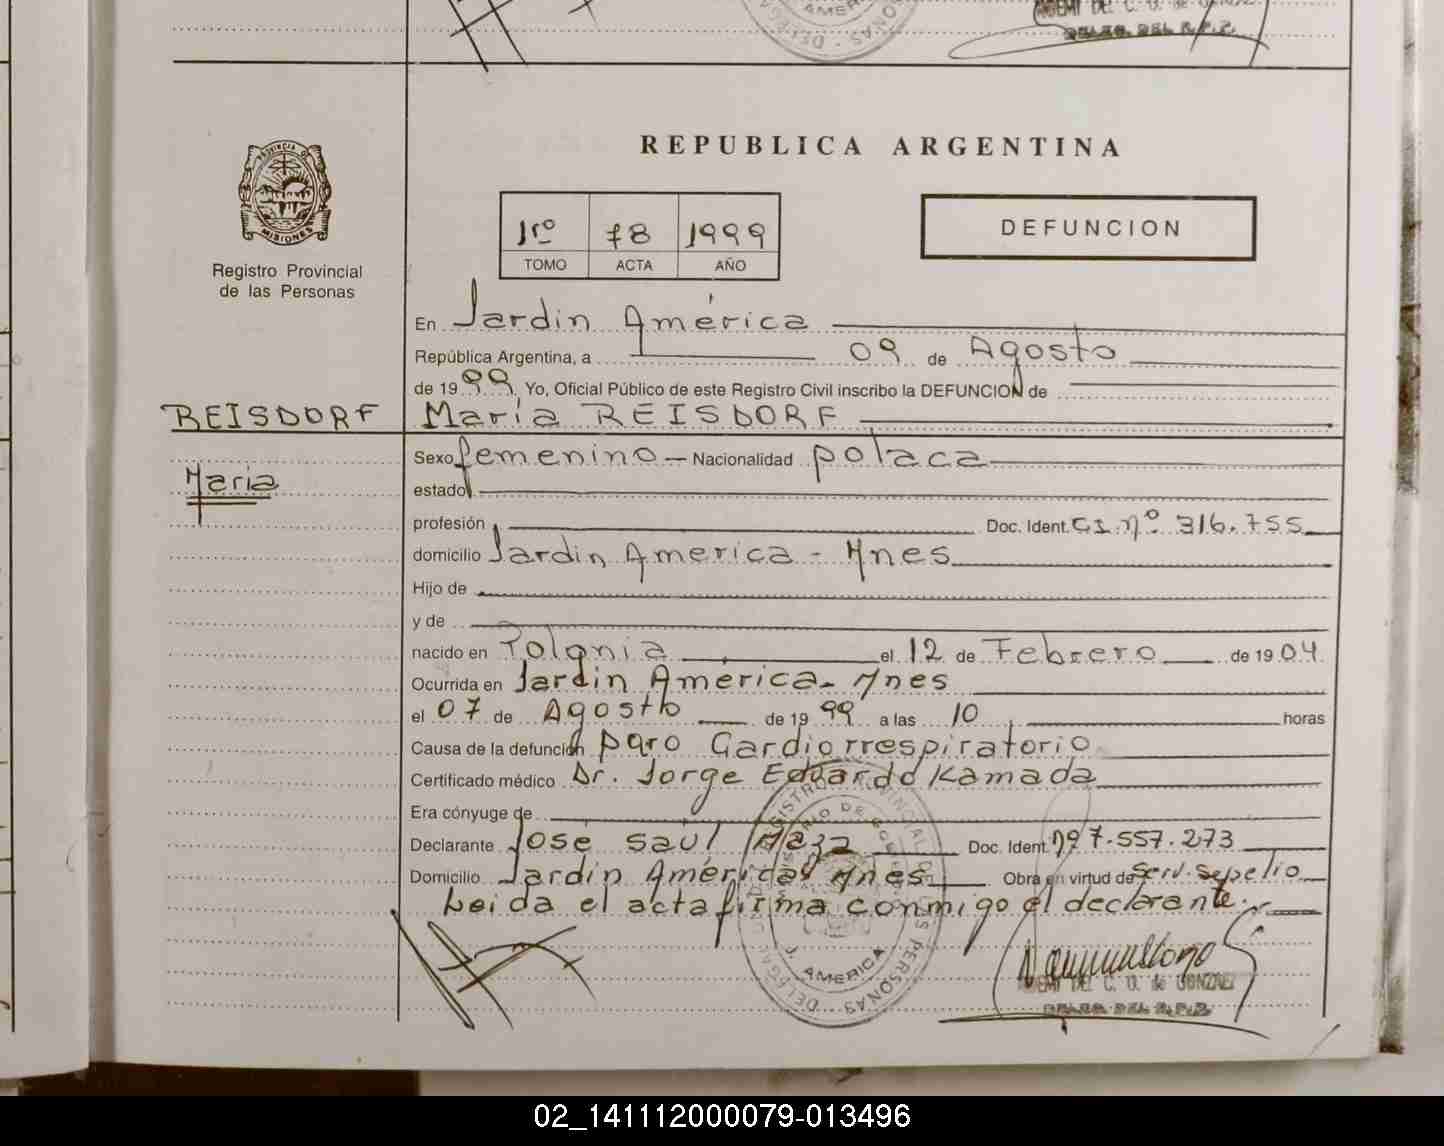 AMERICA
NOEMI DEL C. O. de GONZALEZ
DELEG. DEL R.P.P.
PROVINCIA DE
MISIONES
Registro Provincial
de las Personas
REPUBLICA ARGENTINA
1rº 78 1999
TOMO ACTA AÑO
DEFUNCION
En Jardin América
República Argentina, a 09 de Agosto
de 1999. Yo, Oficial Público de este Registro Civil inscribo la DEFUNCION de
REISDORF María REISDORF
Maria
Sexo femenino - Nacionalidad polaca
estado
profesión Doc. Ident. CI. Nº 316.755
domicilio Jardin America - Mnes
Hijo de
y de
nacido en Polonia el 12 de Febrero de 1904
Ocurrida en Jardin América - Mnes
el 07 de Agosto de 1999 a las 10 horas
Causa de la defunción paro Cardiorrespiratorio
Certificado médico Dr. Jorge Edgardo Kamada
Era cónyuge de
Declarante José Saúl Maza Doc. Ident. Nº 7.557.273
Domicilio Jardin América Mnes Obra en virtud de Serv. Sepelio
Leida el acta firma conmigo el declarante.
J. AMERICA
NOEMI DEL C. O. de GONZALEZ
DELEG. DEL R.P.P.
02_141112000079-013496